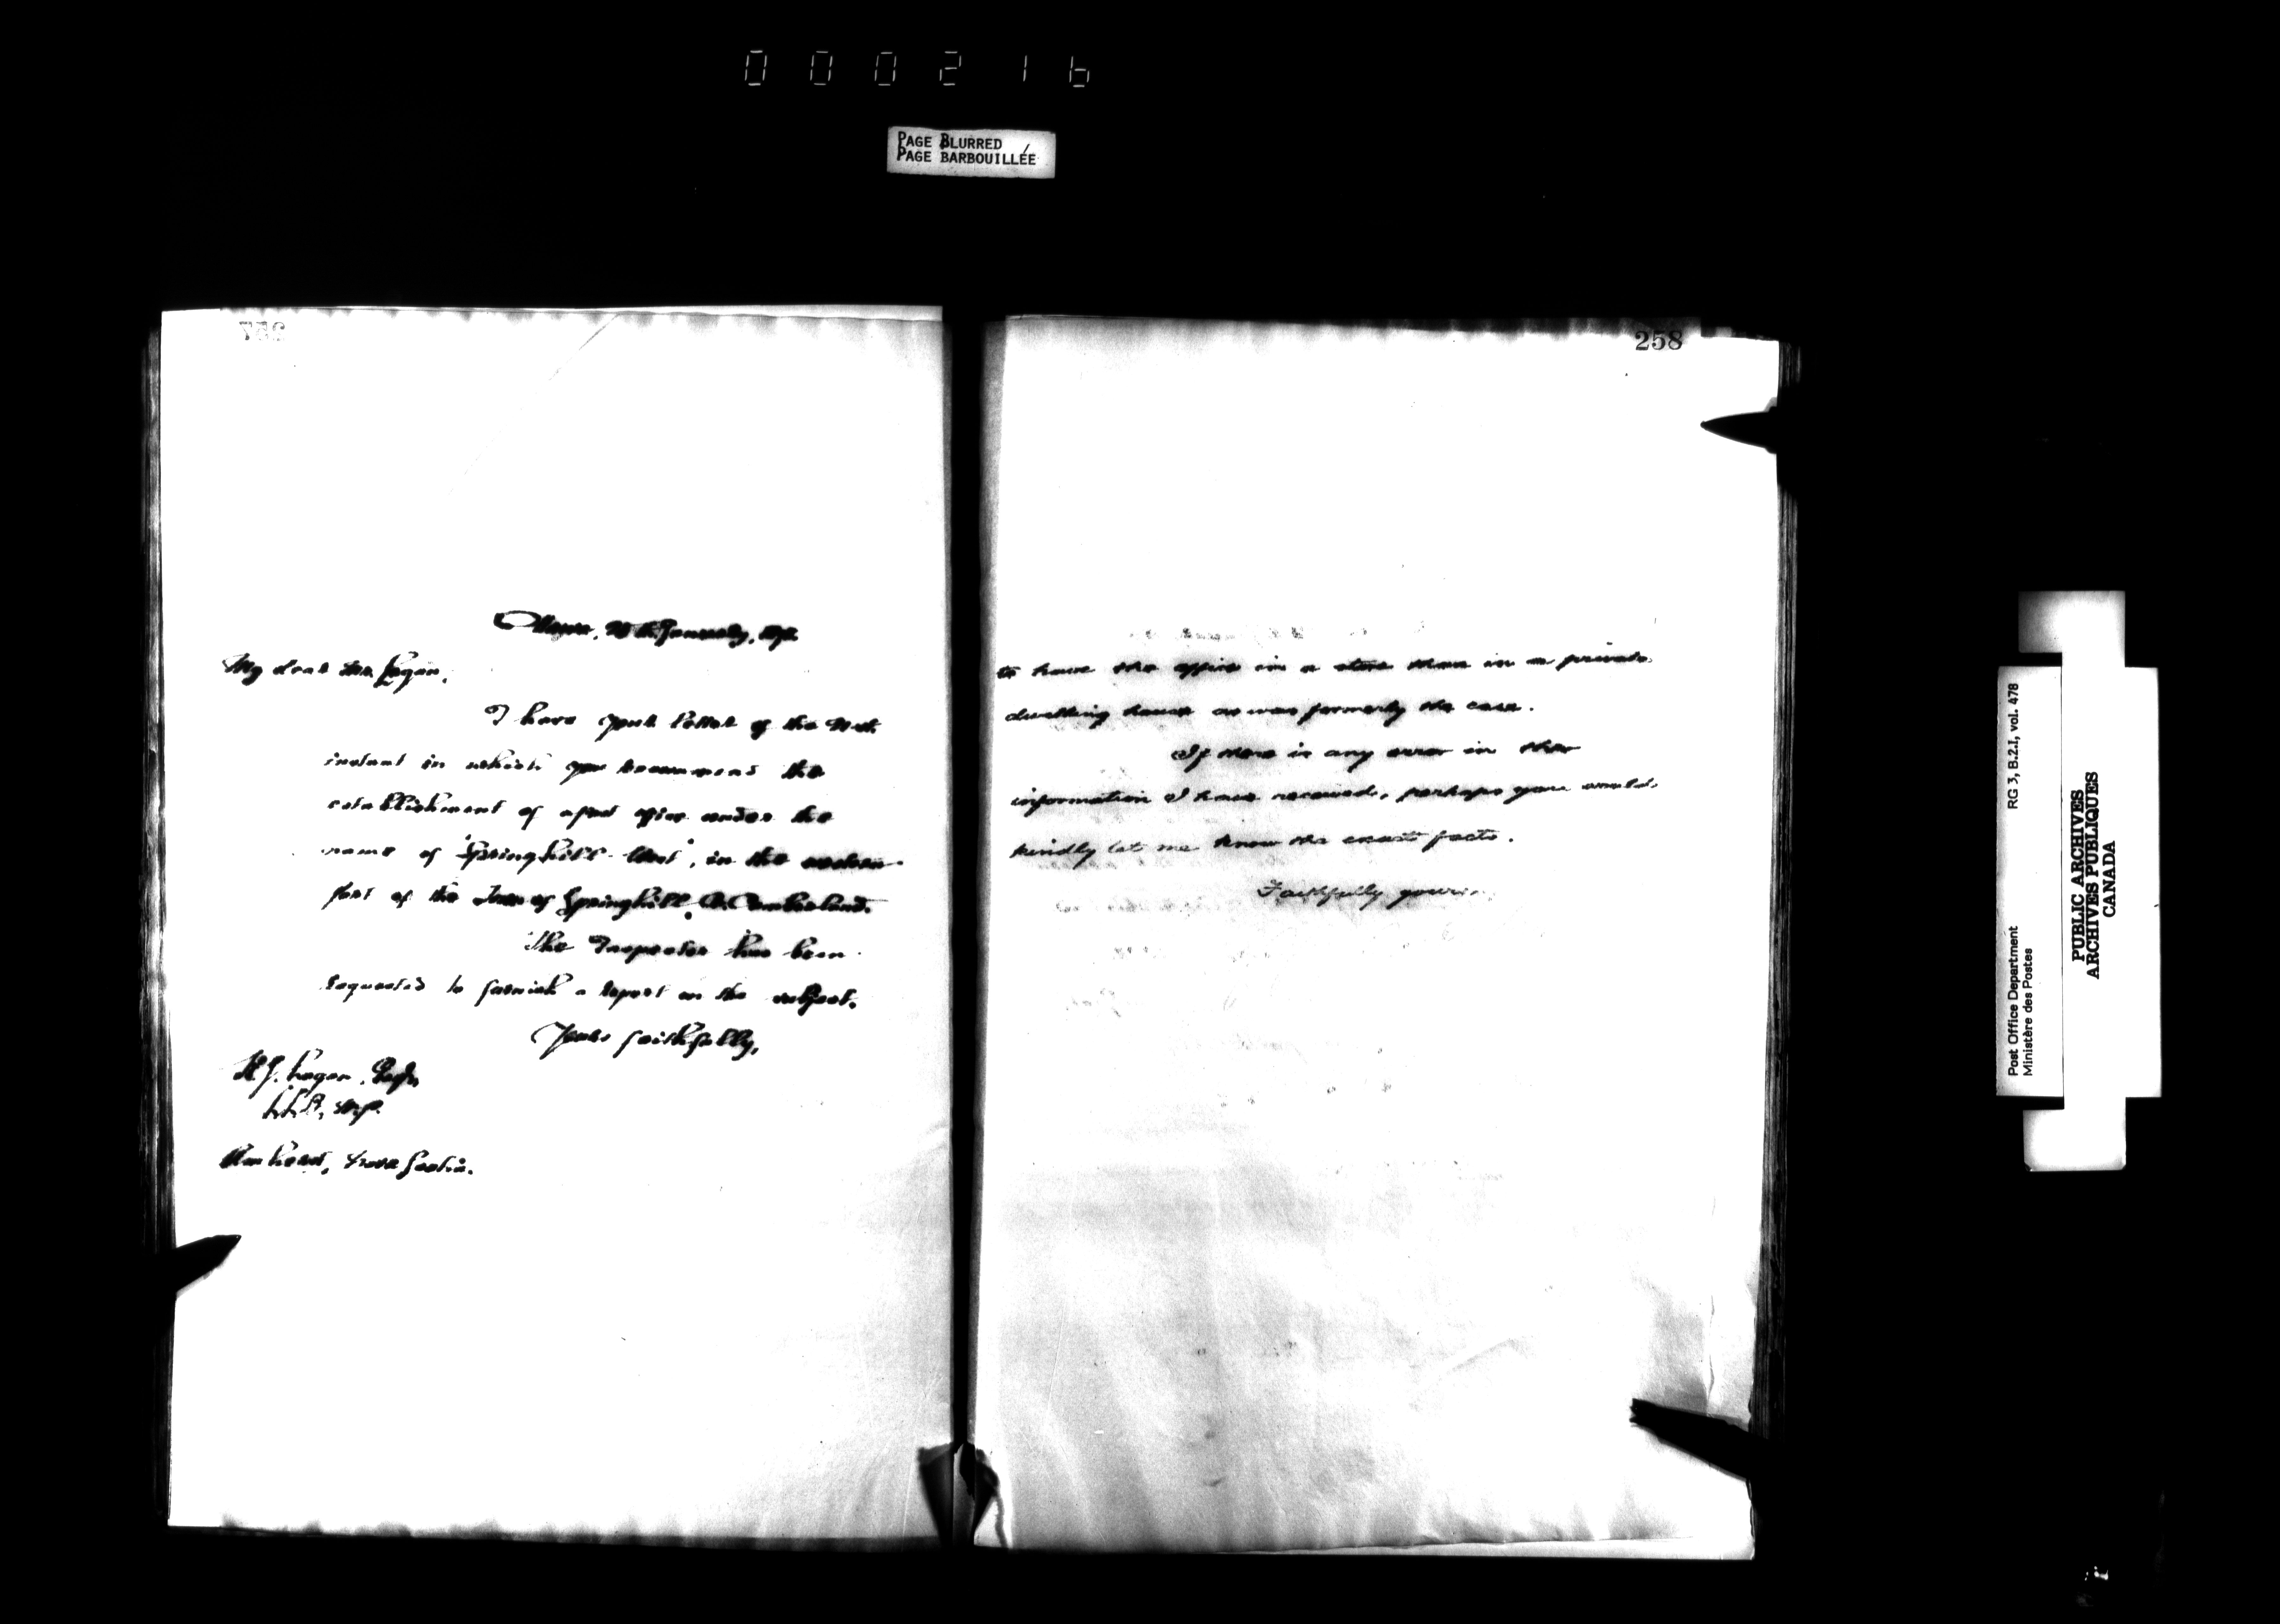 000216
PAGE BLURRED
PAGE BARBOUILLÉE
257
Ottawa, January,
My dear Mr. Logan,
I have your letter of the
instant in which you recommend the
establishment of a post office under the
name of "Springhill West", in the western
part of the Town of Springhill, Co. Cumberland.
The Inspector has been
requested to furnish a report on the subject.
Yours faithfully,
H. J. Logan, Esq.,
LL.B., M.P.
Amherst, Nova Scotia.
258
to have the office in a store than in a private
dwelling house as was formerly the case.
If there is any error in the
information I have received, perhaps you would
kindly let me know the exact facts.
Faithfully yours,
Post Office Department
Ministère des Postes
RG 3, B.2.I, vol. 478
PUBLIC ARCHIVES
ARCHIVES PUBLIQUES
CANADA